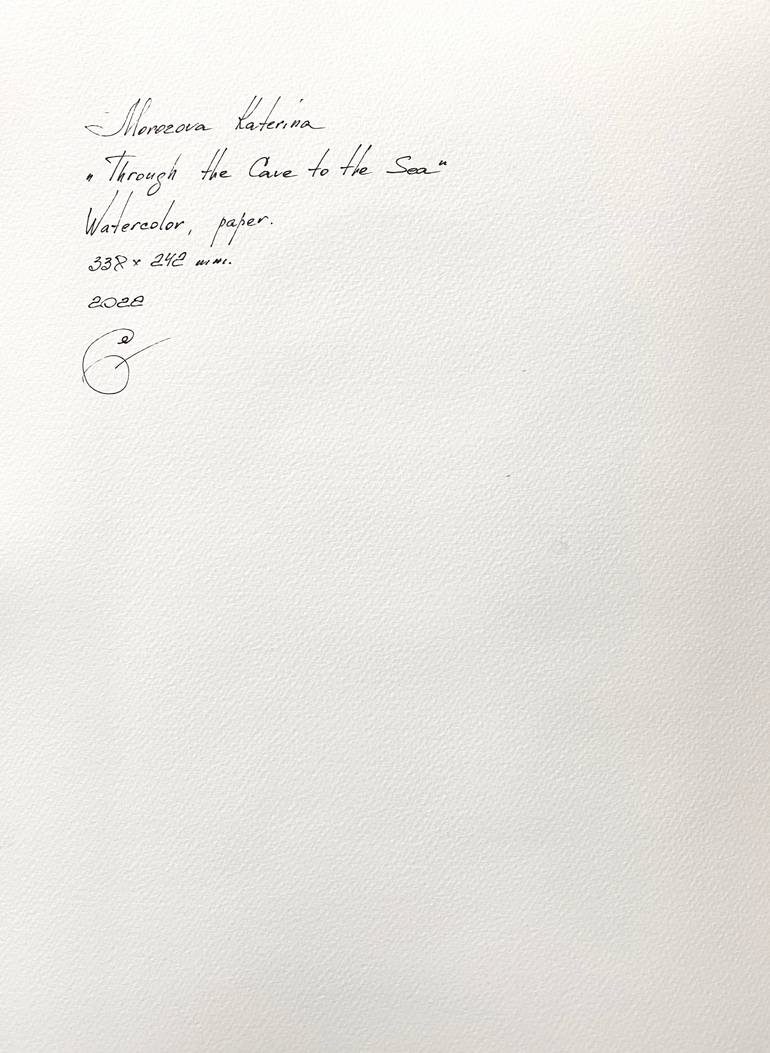 Morozova Katerina
„Through the Cave to the Sea"
Watercolor, paper.
338 × 242 mm.
2022